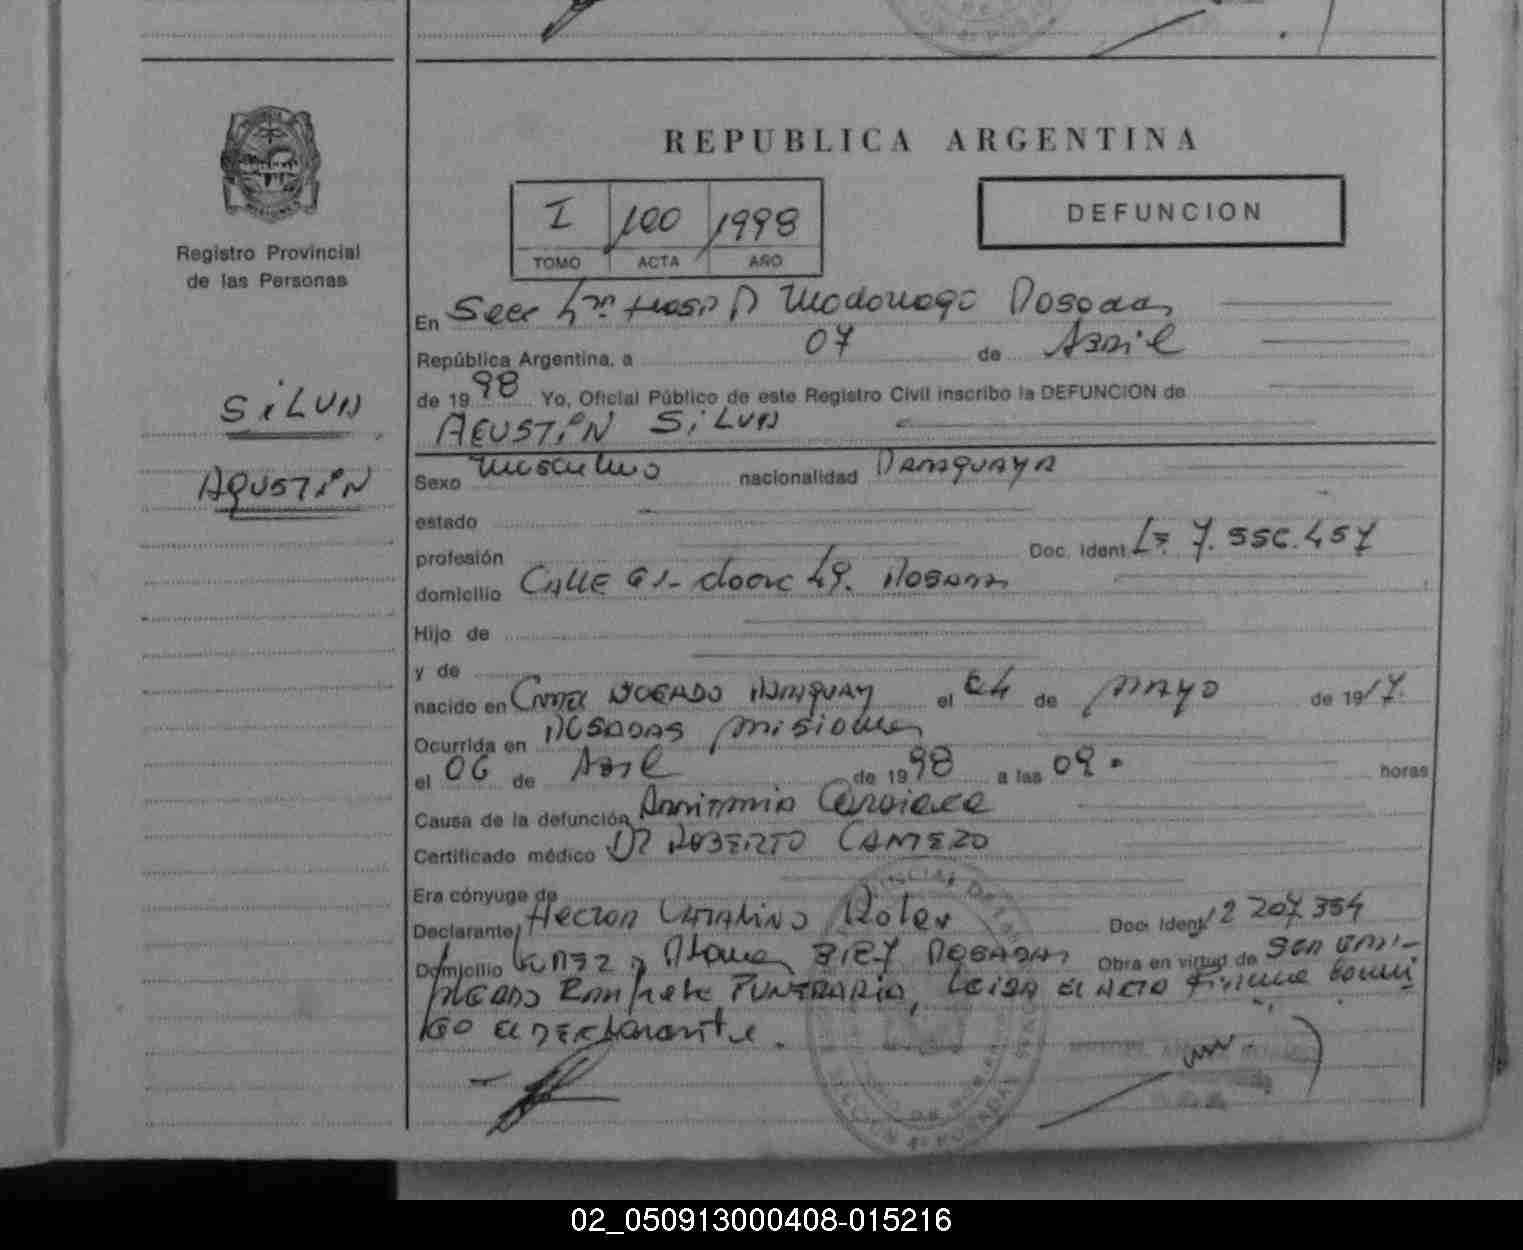 REPUBLICA ARGENTINA
I 100 1998
TOMO ACTA AÑO
DEFUNCION
Registro Provincial
de las Personas
SILVA
AGUSTIN
En Secc 4ta Hosp D Madariaga Posadas
República Argentina, a 07 de Abril
de 1998 Yo, Oficial Público de este Registro Civil inscribo la DEFUNCION de
AGUSTIN SILVA
Sexo Masculino nacionalidad Paraguaya
estado
profesión Doc. Ident. 7.556.457
domicilio CALLE 61- 49. Posadas
Hijo de
y de
nacido en PARAGUAY el 04 de MAYO de 1917.
Ocurrida en POSADAS Misiones
el 06 de Abril de 1998 a las 09. horas
Causa de la defunción Arritmia Cardiaca
Certificado médico Dr ROBERTO CANTERO
Era cónyuge de
Declarante Hector CATALINO Doc. Ident. 12 207 354
Domicilio POSADAS Obra en virtud de Ser emp-
leado FUNERARIA, Leida el ACTA Firma conmi-
go el Declarante.
SECCION 4ª POSADAS
02_050913000408-015216